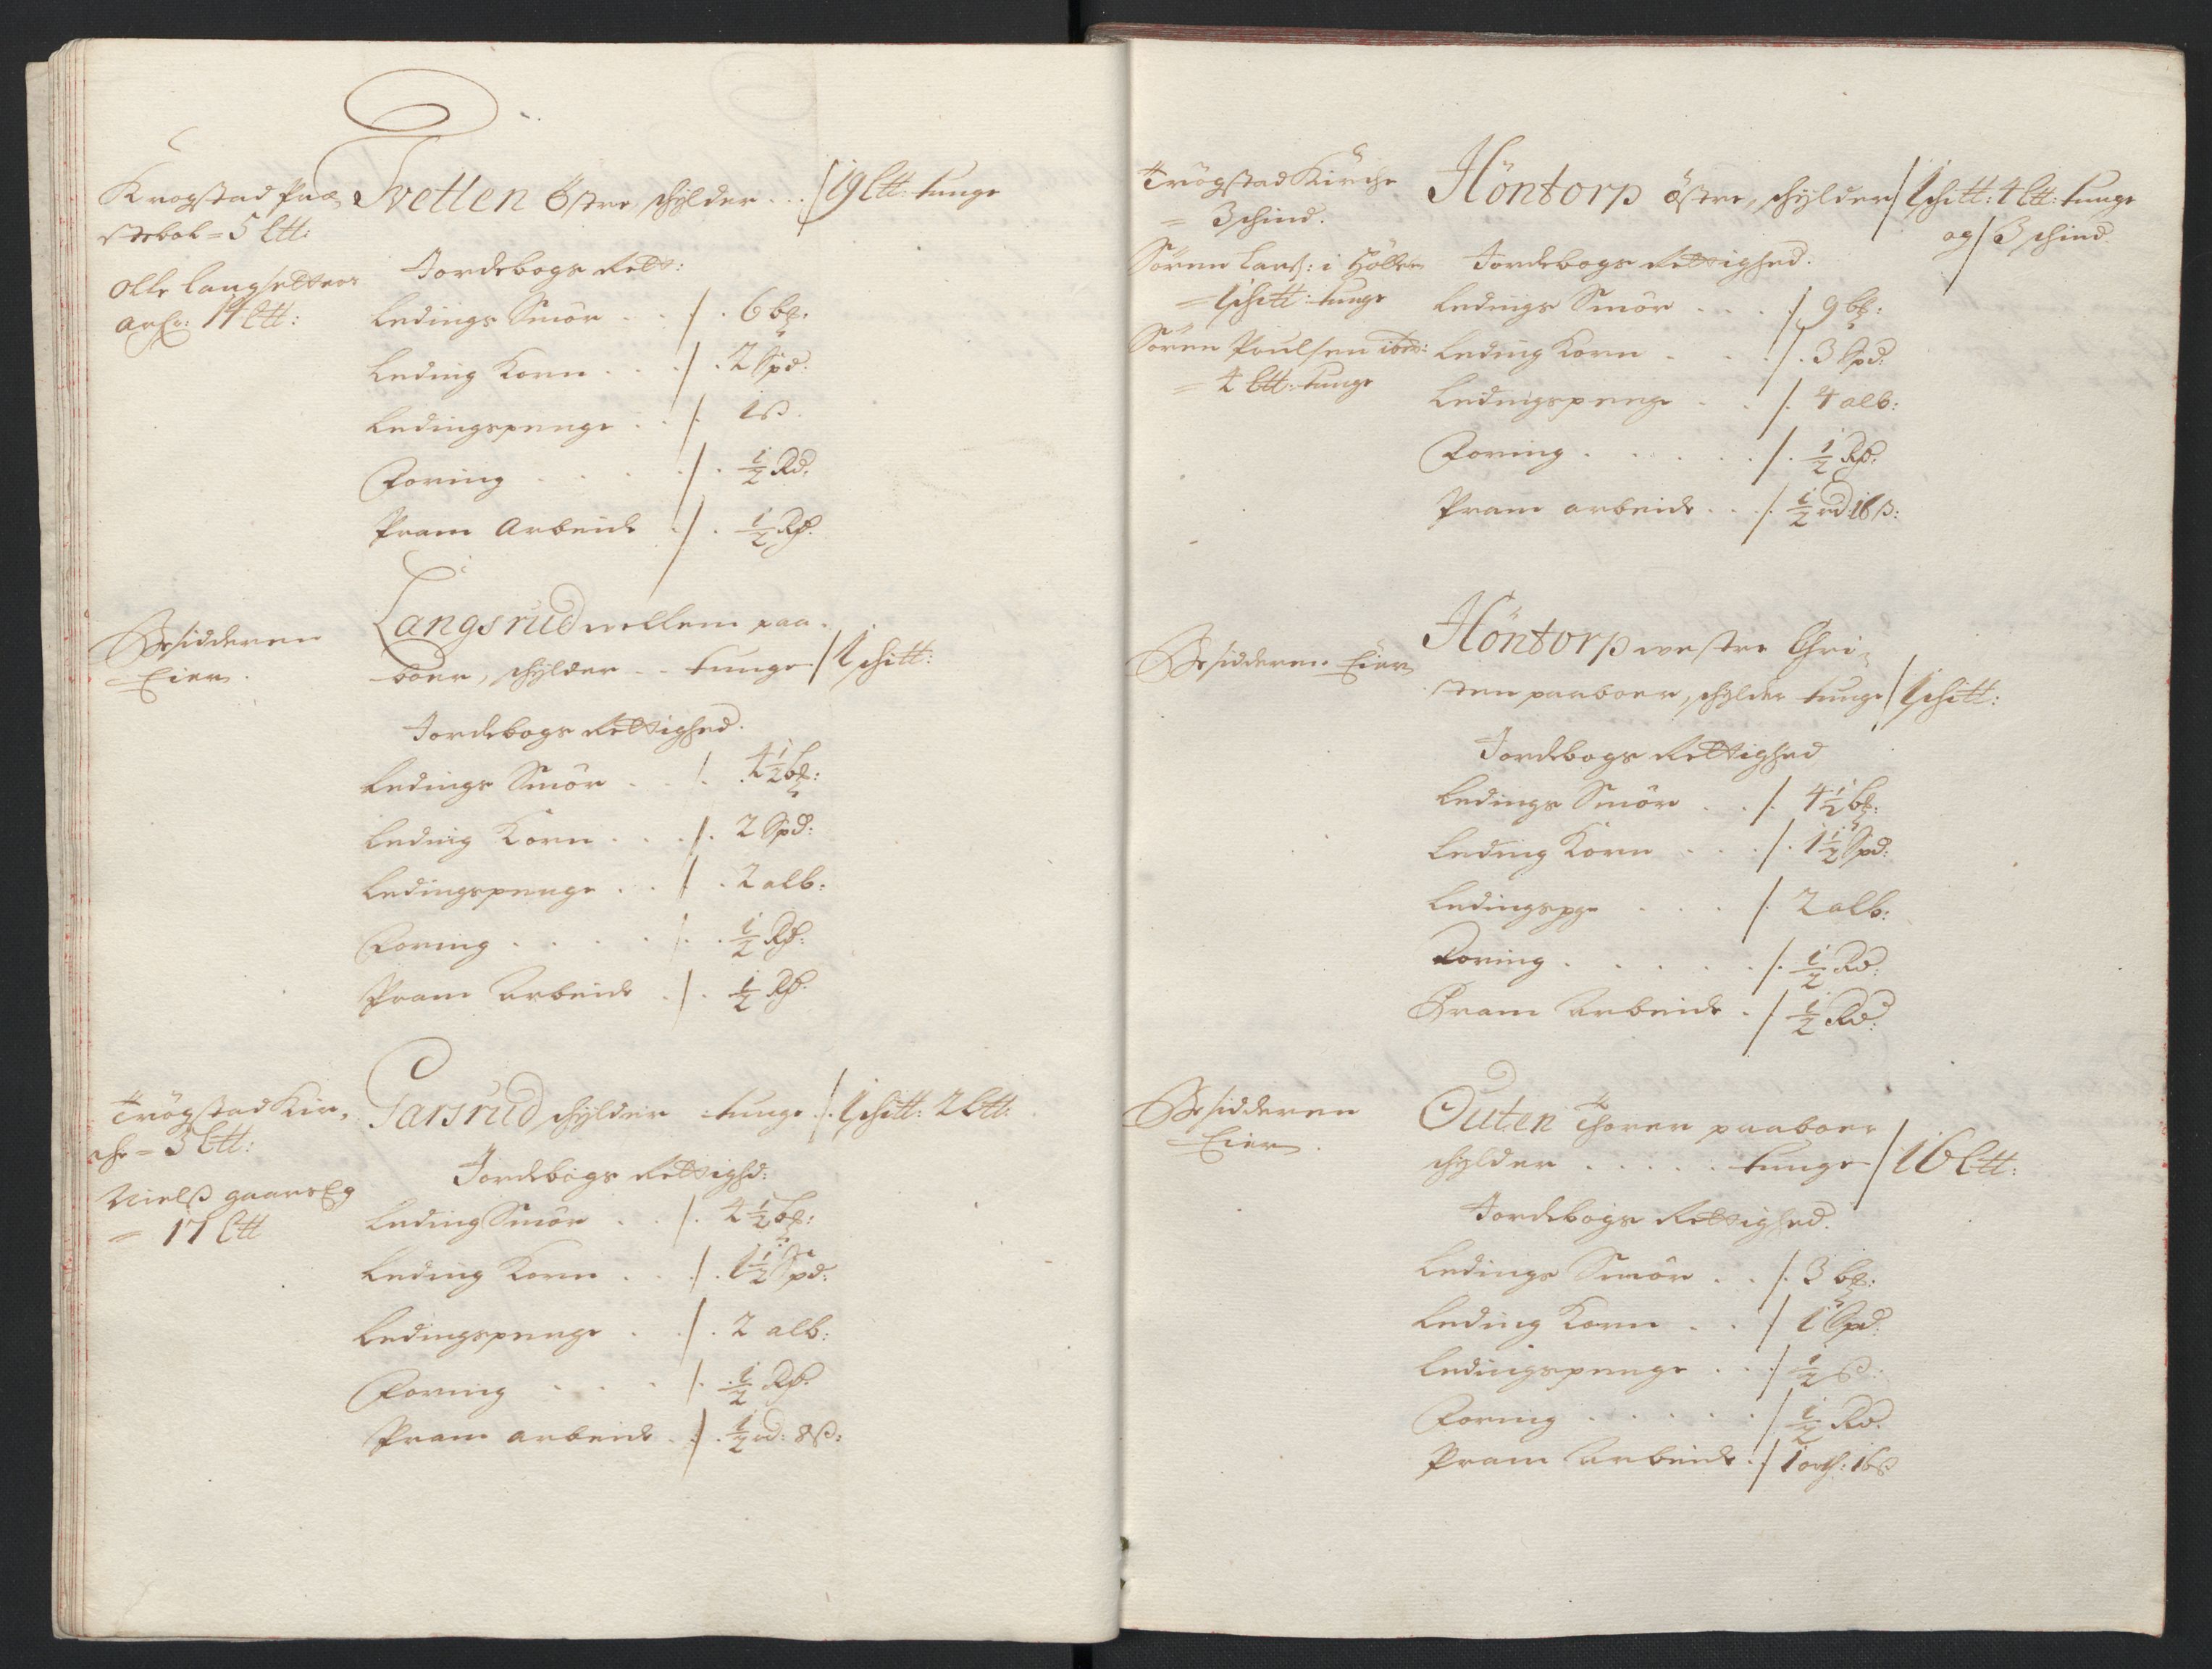 Krogstad Præ,
stebol = 5 Ltt:
Olle Langsetters
arfr: 14 Ltt:
Tvetten Östre, schÿlder ... 19 Ltt: tunge
Jordebogs Rett:
Ledings Smör . . 6 bz:
Leding Korn . . . 2 Spd:
Ledingspenge . . 1 ß.
Foring . . . . ½ Rd.
Pram Arbeide . ½ Rd.
Besidderen
Eier.
Langsrud willem paa-
boer, schÿlder .. tunge 1 schitt:
Jordebogs Rettighed.
Ledings Smör . . . 4½ bz:
Leding Korn . . . 2 Spd:
Ledingspenge . . . 2 alb:
Foring . . . . ½ Rd:
Pram Arbeide . . ½ Rd.
Trögstad Kir,
che = 3 Ltt:
Nielß
= 17 Ltt
Garsrud schÿlder tunge . 1 schitt: 2 Ltt:
Jordebogs Rettighd:
Leding Smör . . . 4½ bz:
Leding Korn . . . 1½ Spd:
Ledingspenge . . . 2 alb:
Foring . . . . ½ Rd.
Pram arbeide . . ½ rd: 8 ß:
Trögstad Kirche
= 3 schind.
Sören Larß: i Höllen
= 1 schitt: tunge
Sören Poulsen ibid:
= 4 Ltt: tunge
Höntorp östre, schÿlder 1 schitt: 4 Ltt: tunge
og 3 schind
Jordebogs Rettighed.
Ledings Smör . . . . 9 bz:
Leding Korn . . . . 3 Spd:
Ledingspenge . . . 4 alb:
Foring . . . . . . ½ Rd.
Pram arbeide . . . ½ rd 16 ß:
Besidderen Eier
Höntorp westre Chri-
sten paaboer, schÿlder tunge 1 schitt:
Jordebogs Rettighed
Ledings Smör . . . 4½ bz:
Leding Korn . . . . 1½ Spd:
Ledingspge . . . . 2 alb:
Foring . . . . . . ½ Rd.
Pram Arbeide . ½ Rd:
Besidderen
Eier.
Outen Thorer paaboer
schÿlder . . . . . tunge 16 Ltt:
Jordebogs Rettighed.
Ledings Smör . . . 3 bz:
Leding Korn . . 1 Spd:
Ledingspenge . . . ½ ß:
Foring . . . . . . ½ Rd.
Pram Arbeide . . 1 orth: 16 ß